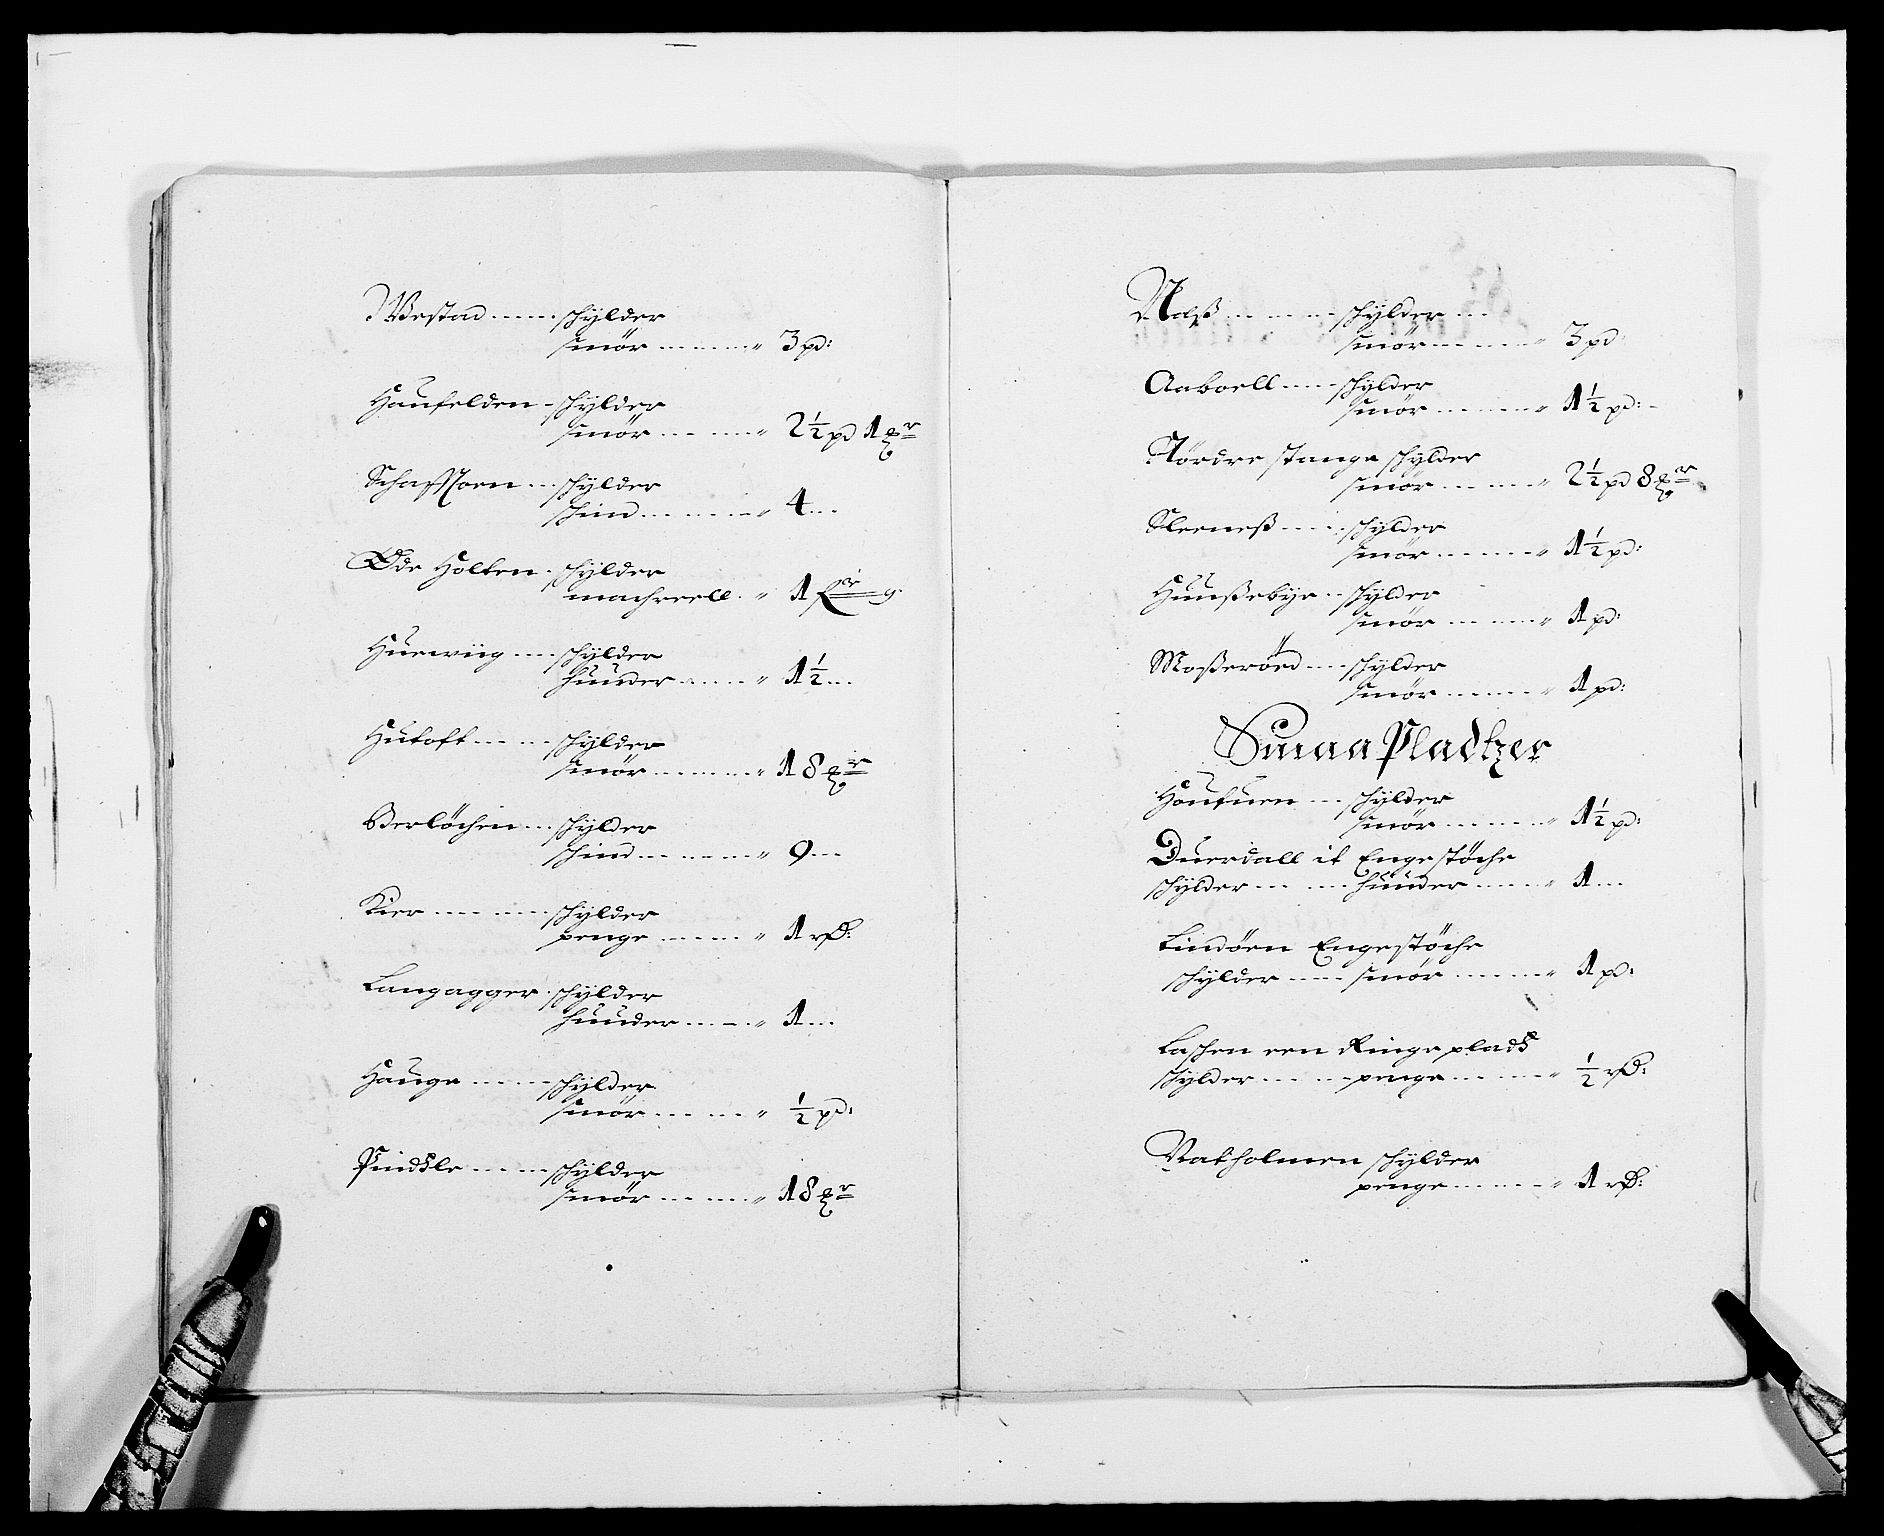 Westad ...... schylder
smör ........ 3 pd:
Haufelden - schylder
smör ........ 2½ pd 1
schylder
schind ........ 4 ...
Øde Holten . schylder
machreell . 1
Huewiig .... schylder
huuder ........ 1½ ...
Hütoft ...... schylder
smör ........ 18
Berlöchen ... schylder
schind ........ 9 ...
Kier ........ schylder
penge ........ 1 rd:
Langagger . schylder
huuder ........ 1 ...
Hauge ...... schylder
smör ........ ½ pd:
schylder
smör ........ 18
Næß ........ schylder ...
smör ........ 3 pd:
Aaboell ..... schylder
smör ........ 1½ pd: -
Nördre stange schylder
smör ........ 2½ pd 8
Sleeneß ..... schylder
smör ........ 1½ pd:
Huußebye .. schylder
smör ........ 1 pd:
Moßeröed .... schylder
smör ........ 1 pd:
Smaa Pladtzer
schylder
smör ........ 1½ pd:
Duerdall it Engestöche
schylder ..... huuder ..... 1 ...
Lindöen Engestöche
schylder .... smör ....... 1 pd:
Laschen een Ringe plads
schylder ...... penge ...... ½ rd:
Ratholmen schylder
penge ........ 1 rd: